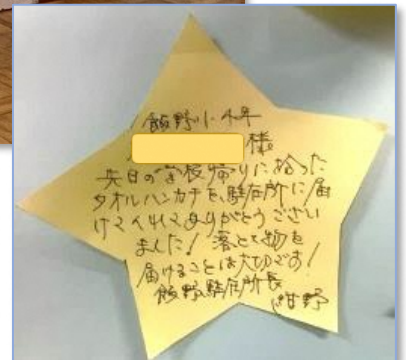 飯野小 4年
様
先日の学校帰りに拾った
タオルハンカチを、駐在所に届
けてくれてありがとうござい
ました！落とし物を
届けることは大切です！
飯野駐在所長
紺野